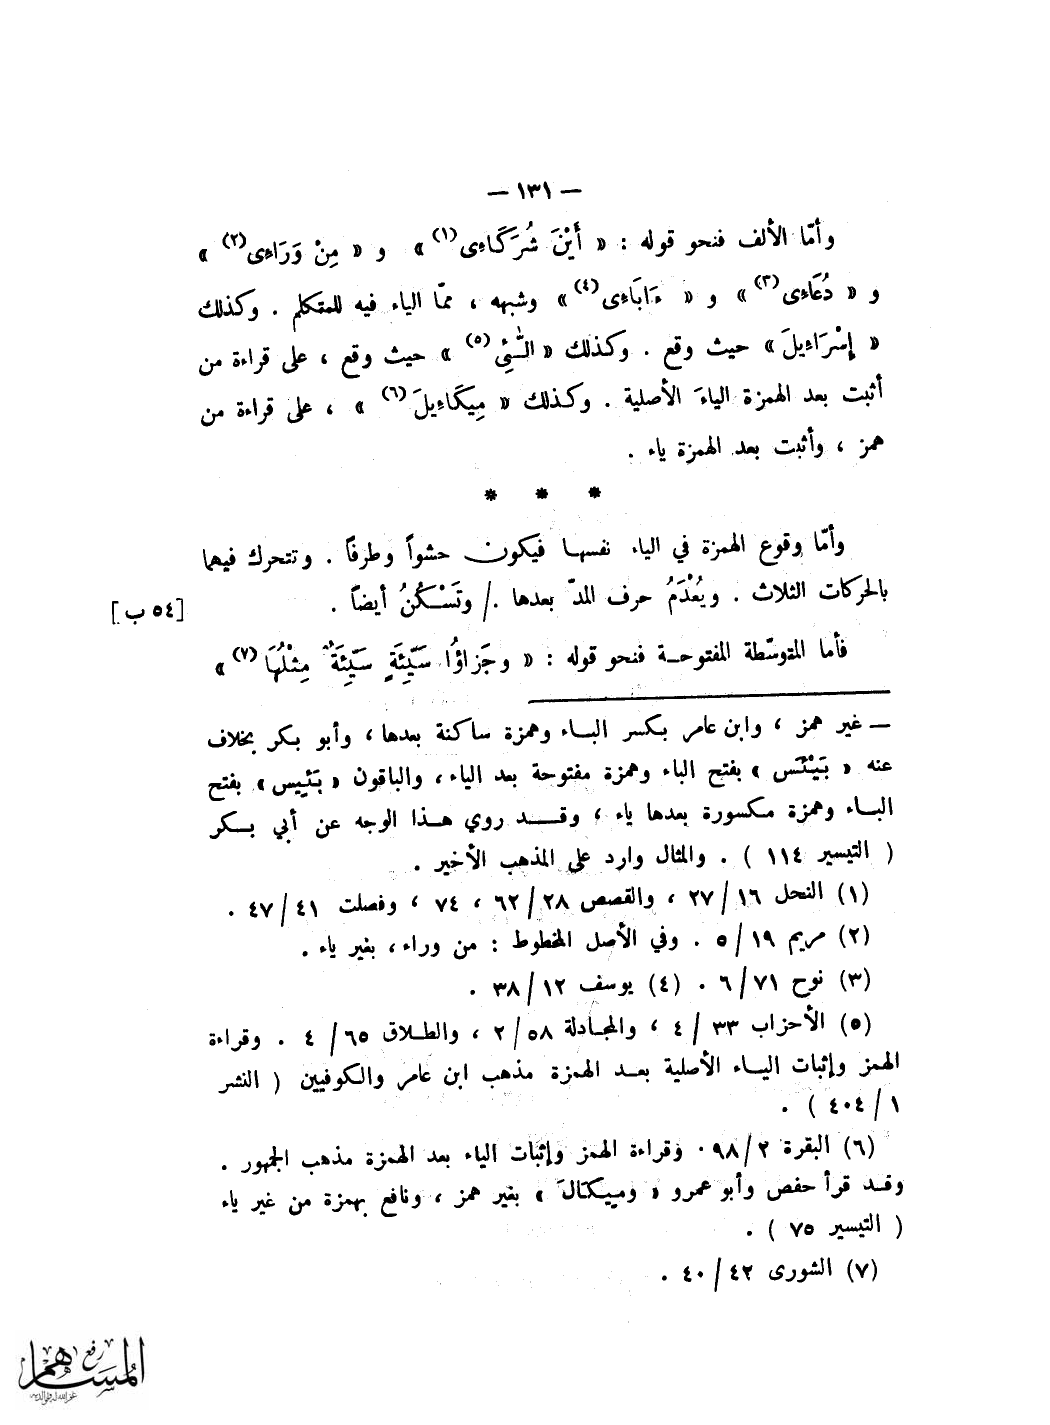 — ١٣١ —
وأمّا الألف فنحو قوله : « أَيْنَ شُرَكَاءِى (١) » و « مِنْ وَرَاءِى (٢) »
و « دُعَاءِى (٣) » و « ءَابَاءِى (٤) » وشبهه ، ممّا الياء فيه للمتكلم . وكذلك
« إِسْرَاءِيلَ » حيث وقع . وكذلك « الَّـٰئِى (٥) » حيث وقع ، على قراءة من
أثبت بعد الهمزة الياءَ الأصلية . وكذلك « مِيكَاءِيلَ (٦) » ، على قراءة من
همز ، وأثبت بعد الهمزة ياء .
* * *
وأمّا وقوع الهمزة في الياء نفسها فيكون حشواً وطرفاً . وتتحرك فيهما
بالحركات الثلاث . ويُعْدَمُ حرف المدّ بعدها ./ وتَسْكُنُ أيضاً . [٥٤ ب]
فأما المتوسّطة المفتوحة فنحو قوله : « وجَزاؤُا سَيِّئَةٍ سَيِّئَةٌ مِثْلُهَا (٧) »
— غير همز ، وابن عامر بكسر الباء وهمزة ساكنة بعدها ، وأبو بكر بخلاف
عنه « بَيْئَس » بفتح الباء وهمزة مفتوحة بعد الياء ، والباقون « بَئِيس » بفتح
الباء وهمزة مكسورة بعدها ياء ، وقد روي هذا الوجه عن أبي بكر
( التيسير ١١٤ ) . والمثال وارد على المذهب الأخير .
(١) النحل ١٦/ ٢٧ ، والقصص ٢٨/ ٦٢ ، ٧٤ ، وفصلت ٤١/ ٤٧ .
(٢) مريم ١٩/ ٥ . وفي الأصل المخطوط : من وراء ، بغير ياء .
(٣) نوح ٧١/ ٦ . (٤) يوسف ١٢/ ٣٨ .
(٥) الأحزاب ٣٣/ ٤ ، والمجادلة ٥٨/ ٢ ، والطلاق ٦٥/ ٤ . وقراءة
الهمز وإثبات الياء الأصلية بعد الهمزة مذهب ابن عامر والكوفيين ( النشر
١/ ٤٠٤ ) .
(٦) البقرة ٢/ ٩٨ . وقراءة الهمز وإثبات الياء بعد الهمزة مذهب الجمهور .
وقد قرأ حفص وأبو عمرو « وميكالَ » بغير همز ، ونافع بهمزة من غير ياء
( التيسير ٧٥ ) .
(٧) الشورى ٤٢/ ٤٠ .
رفع
المساهم
غفر الله له ولوالديه